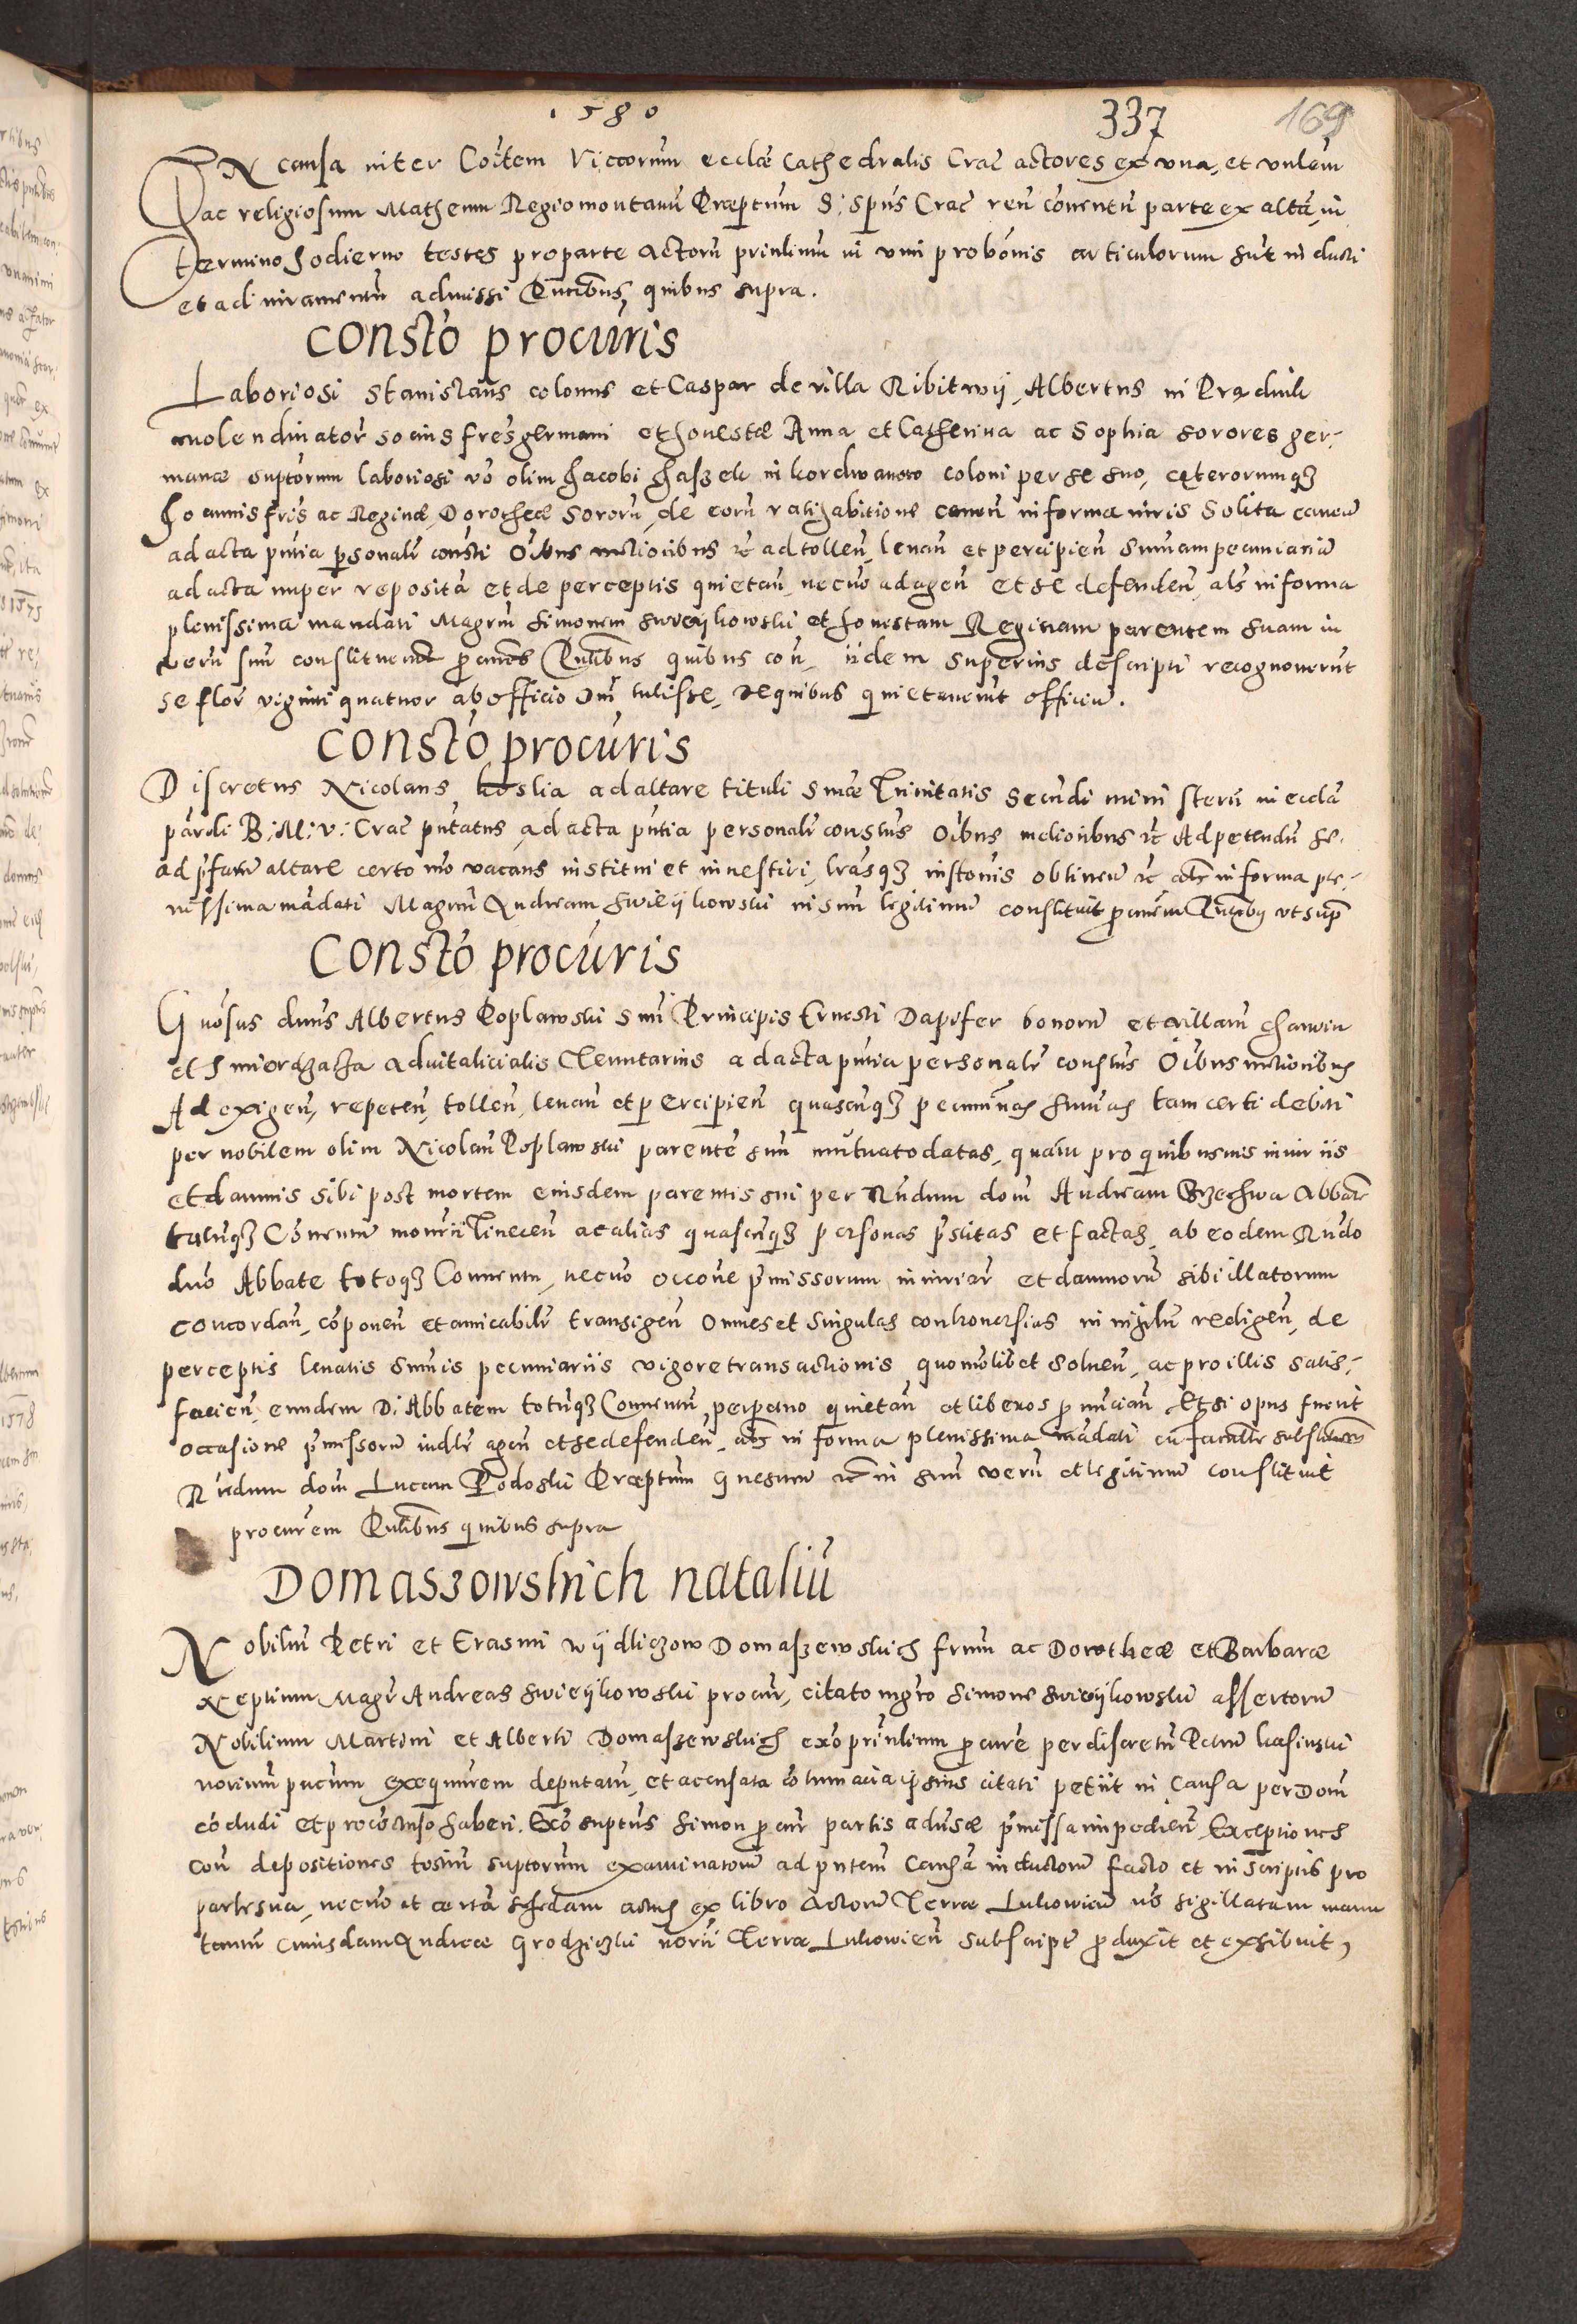 1580
337
169
In causa inter Coitem Viccorum ecclæ Cathedralis Crac actores ex vna, et vnlem
ac religiosum Matheum Regiomontanu Præptum S: Spus Crac reu conentu parte ex altã, in
termino hodierno testes pro parte Actoru prinlium in vim probonis articulorum sut in ducti
et ad iuramentu admissi Pntibus quibus supra.
Consto procuris
Laboriosi Stanislaus colonus et Caspar de villa Ribitwij, Albertus in Prądnik
molendinator socius fres germani et honestæ Anna et Catherina ac Sophia sorores ger-
manæ suptorum laboriosi vo olim Jacobi in coloni per se suo, cęterorumqz
Joannis fris ac Reginæ, Dorotheæ Sororu, de coru ratihabitione caueu in forma iuris solita caueu
ad acta pntia psonalr consti Oibus melioribus rc ad tolleu, leuau et percipieu sumam pecuniariu
ad acta nuper repositã et de perceptis quietau, necuo ad ageu et se defendeu, als in forma
plenissima mandati Magrm Simonem Swieijkowski et honestam Reginam parentem suam in
veru suu constituerut pcures Pntibus quibus cou, iidem superius descripti recognouerut
se flor viginti quatuor ab officio Oui tulisse, de quibus quietauerut officiu.
Consto procuris
Discretus Nicolaus Koslia ad altare tituli Smæ Trinitatis secundi ministerii in eccla
parcli B: M: V: Crac pntatus, ad acta pntia personalr constus Oibus melioribus rc Ad petendu se.
ad pfatu altare certo mo vacans institui et inuestiri, lrasqz instonis obtineu rc als in forma ple-
nissima madati Magrm Andream Swieijkowski in suu legitimu constituit pcurem Pntiby vt sup
Consto procuris
Gnosus dnus Albertus Poplawski smi Principis Ernesti Dapifer bonoru et villaru
et aduitalicialis Tenutarius ad acta pntia personalr constus Oibus melioribus
Ad exigeu, repeteu, tolleu, leuau et percipieu quascuqz pecuniarias sumas tam certi debiti
per nobilem olim Nicolau Poplawski parente suu mutuato datas, quam pro quibusuis iniuriis
et damnis sibi post mortem eiusdem parentis sui per Rudum dom Andream Brzechwa Abbate
totuqz Conuentu monrii Tineceu ac alias quascuqz personas pstitas et factas, ab eodem Rudo
duo Abbate totoqz Conuentu, necuo occone pmissorum iniuriar et damnoru sibi illatorum
concordau, coponeu et amicabilr transigeu Omnes et Singulas controuersias in nihilu redigeu, de
perceptis leuatis Sumis pecuniariis vigore transactionis quomolibet solueu, ac pro illis satis-
facieu, eundem D: Abbatem totuqz Conuentu, perpetuo quietau et liberos pnuciau, Et si opus fuerit
occasione pmissoru iudlr ageu et se defendeu, als in forma plenissima madati cu facultte substitueu
Rudum dom Lucam Podoski Præptum Gnesneu rc in suu veru et legitimu constituit
procurem Pntibus quibus supra
Domaszowskich nataliu
Nobiliu Petri et Erasmi Wijdliczow Domaszewskich frum ac Dorotheæ et Barbaræ
Neptium Magr Andreas Swieijkowski procur, citato mgro Simone Swieijkowski assertoru
Nobilium Martini et Alberti Domaszewskich ex opprinlium pcure per discretu Petru
noriumpucum exequurem deputatu, et accusata cotumacia ipsius citati petiit in causa per Dom
cocludi et pro coclusa haberi. Exo suptus Simon pcur partis aduse pmissa impedieu, Exceptiones
cou depositiones testiu suptorum examinatoru ad pntem Causa inductoru facto et in scriptis pro
parte sua, necuo et certa schedam actus ex libro Actoru Terræ Lukowieu no sigillatam manu
tamu cuiusdam Andreæ Grodziczki norii Terræ Lukowieu subscripta pduxit et exhibuit,